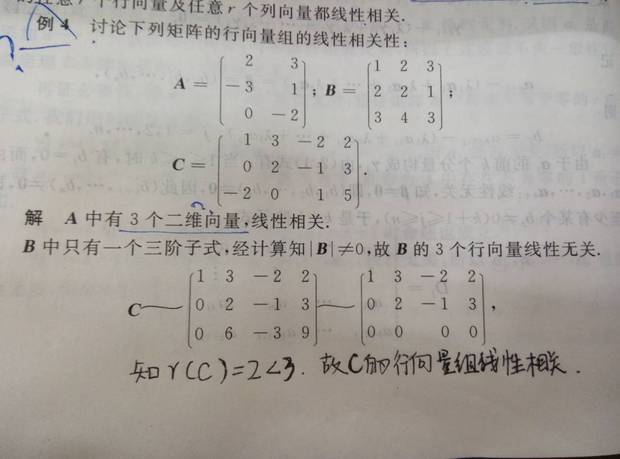 个行向量及任意 r 个列向量都线性相关.
例 4 讨论下列矩阵的行向量组的线性相关性:
A = [2 3; -3 1; 0 -2]; B = [1 2 3; 2 2 1; 3 4 3];
C = [1 3 -2 2; 0 2 -1 3; -2 0 1 5].
解 A 中有 3 个二维向量,线性相关.
B 中只有一个三阶子式,经计算知|B|≠0,故 B 的 3 个行向量线性无关.
C — [1 3 -2 2; 0 2 -1 3; 0 6 -3 9] — [1 3 -2 2; 0 2 -1 3; 0 0 0 0],
知 r(C)=2<3. 故C的行向量组线性相关.